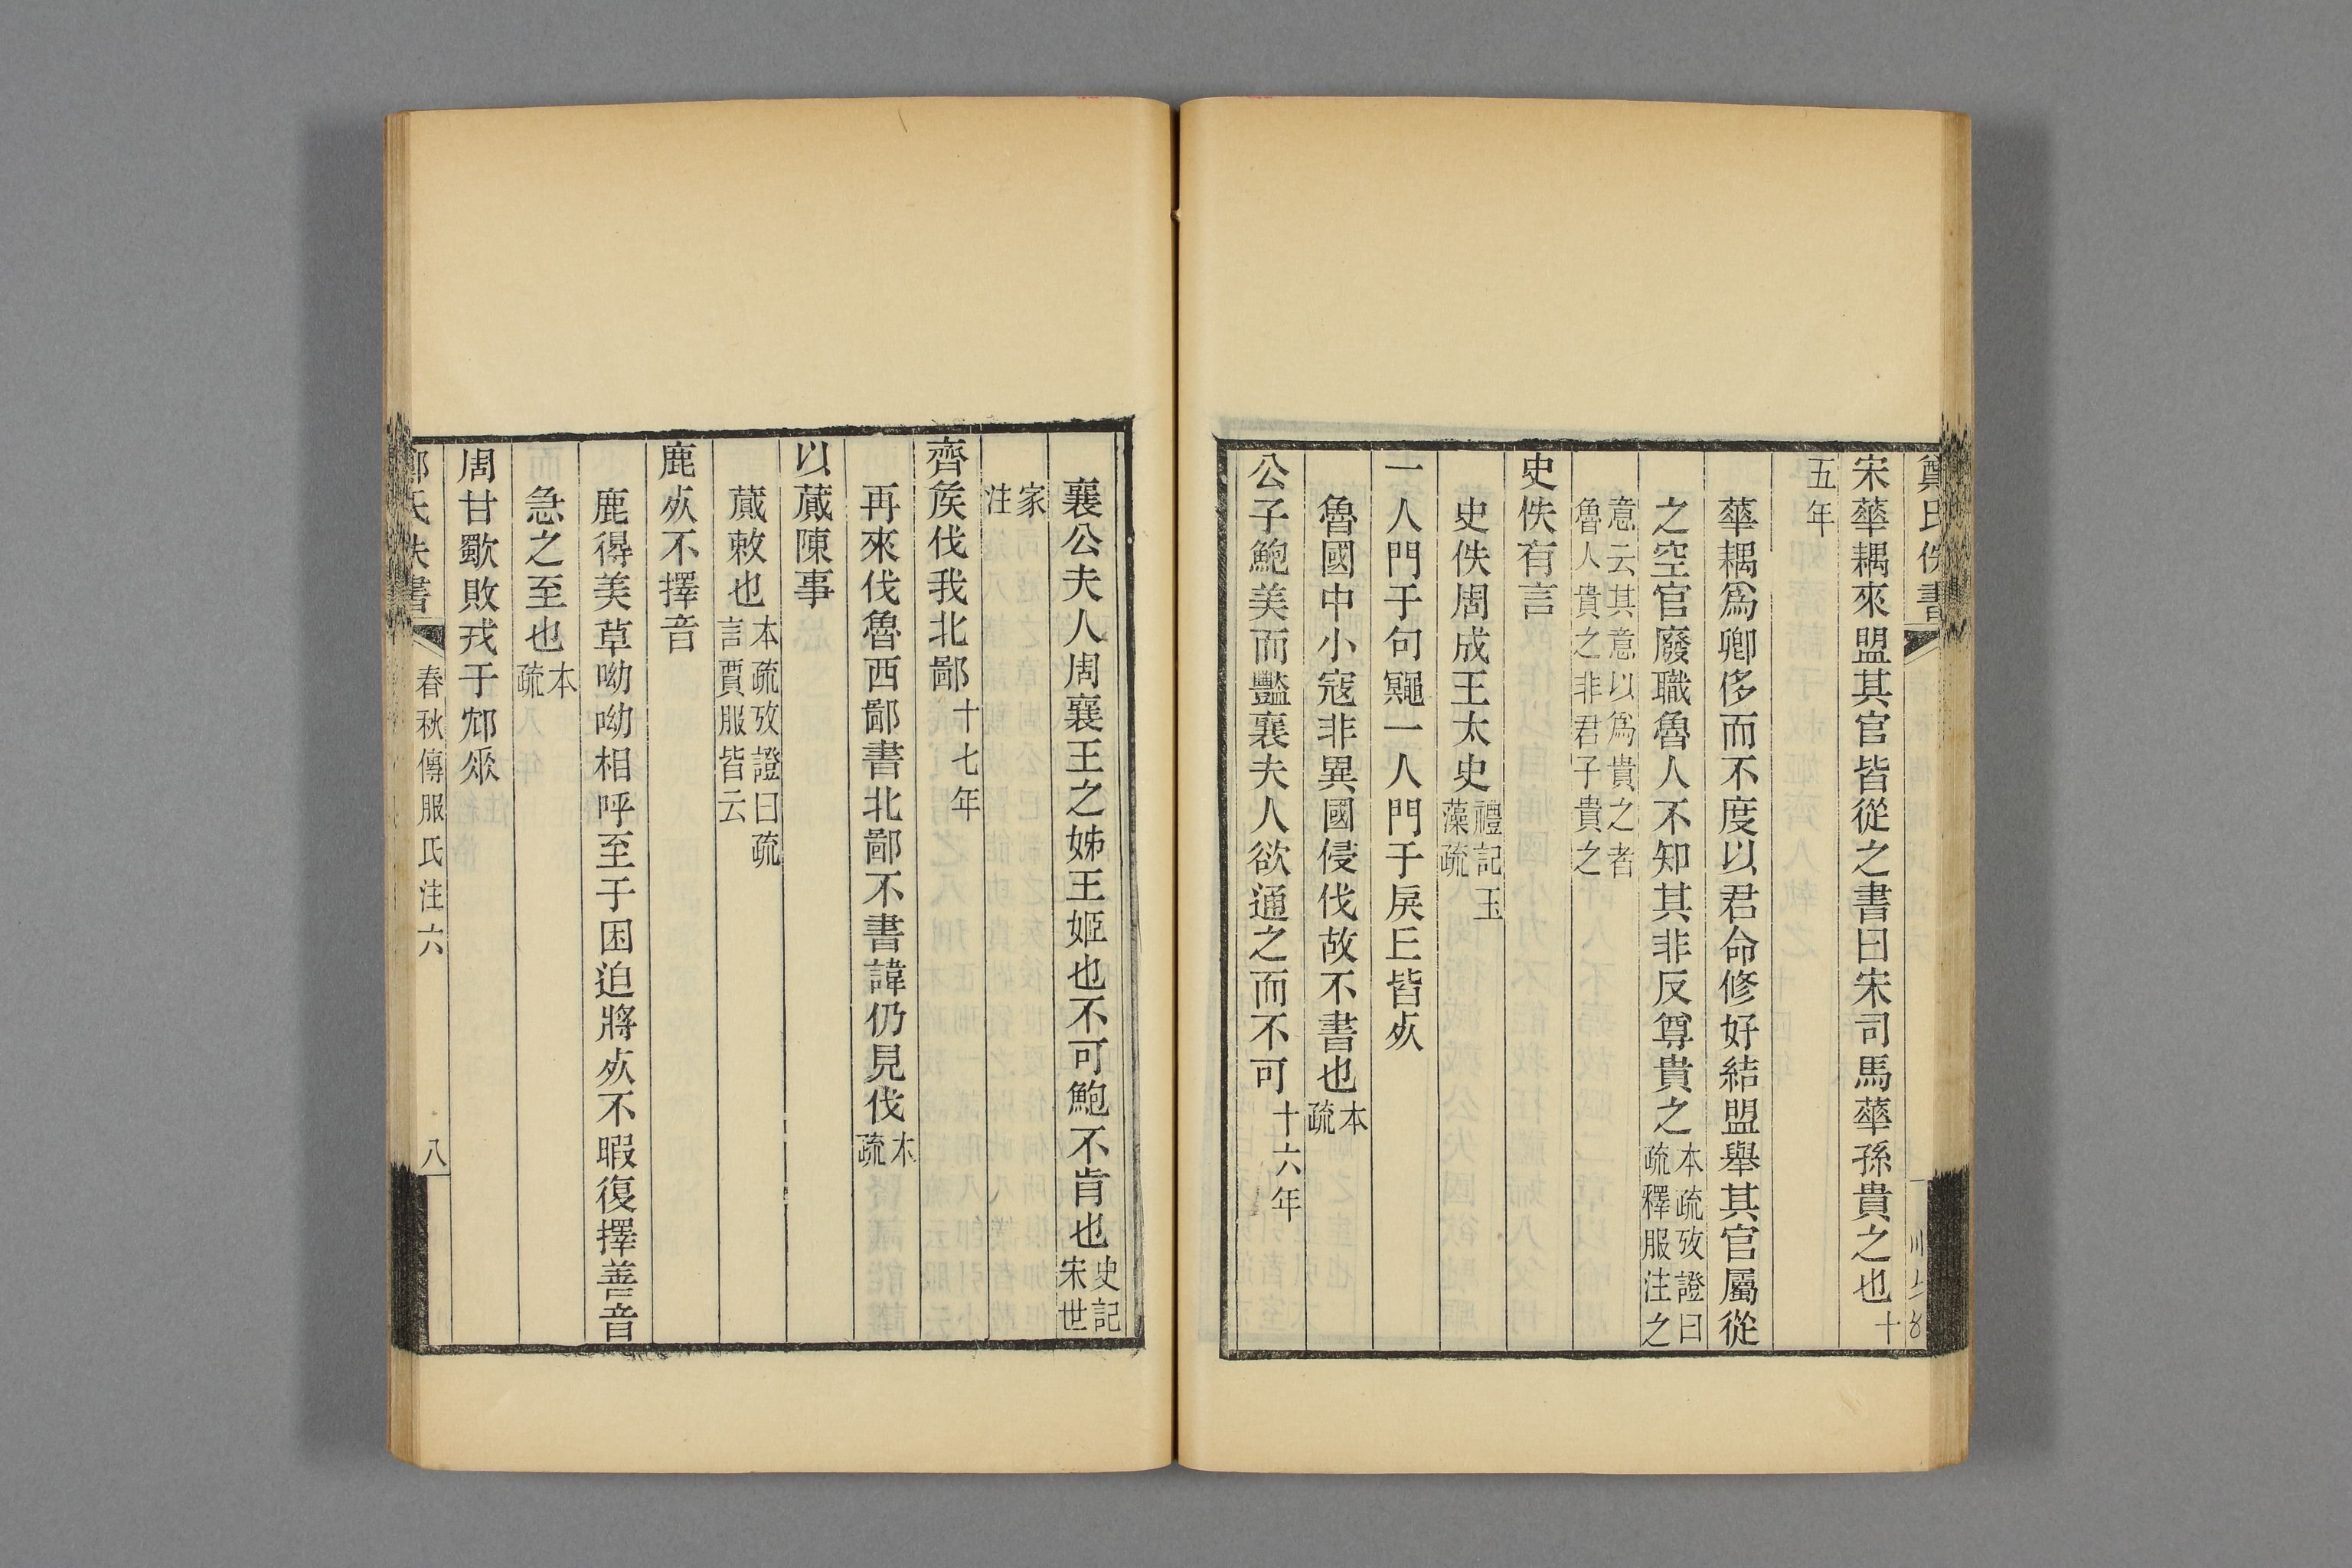 鄭氏佚書
宋華耦來盟其官皆從之書曰宋司馬華孫貴之也十
五年
華耦爲卿侈而不度以君命修好結盟舉其官屬從
之空官廢職魯人不知其非反尊貴之本疏攷證曰疏釋服注之
意云其意以爲貴之者魯人貴之非君子貴之
史佚有言
史佚周成王太史禮記玉藻疏
一人門于句鼆一人門于戾丘皆死
魯國中小寇非異國侵伐故不書也本疏
公子鮑美而豔襄夫人欲通之而不可十六年
襄公夫人周襄王之姊王姬也不可鮑不肯也史記宋世
家注
齊矦伐我北鄙十七年
再來伐魯西鄙書北鄙不書諱仍見伐本疏
以蕆陳事
蕆敕也本疏攷證曰疏言賈服皆云
鹿死不擇音
鹿得美草呦呦相呼至于困迫將死不暇復擇善音
急之至也本疏
周甘歜敗戎于邥垂
春秋傳服氏注六
八